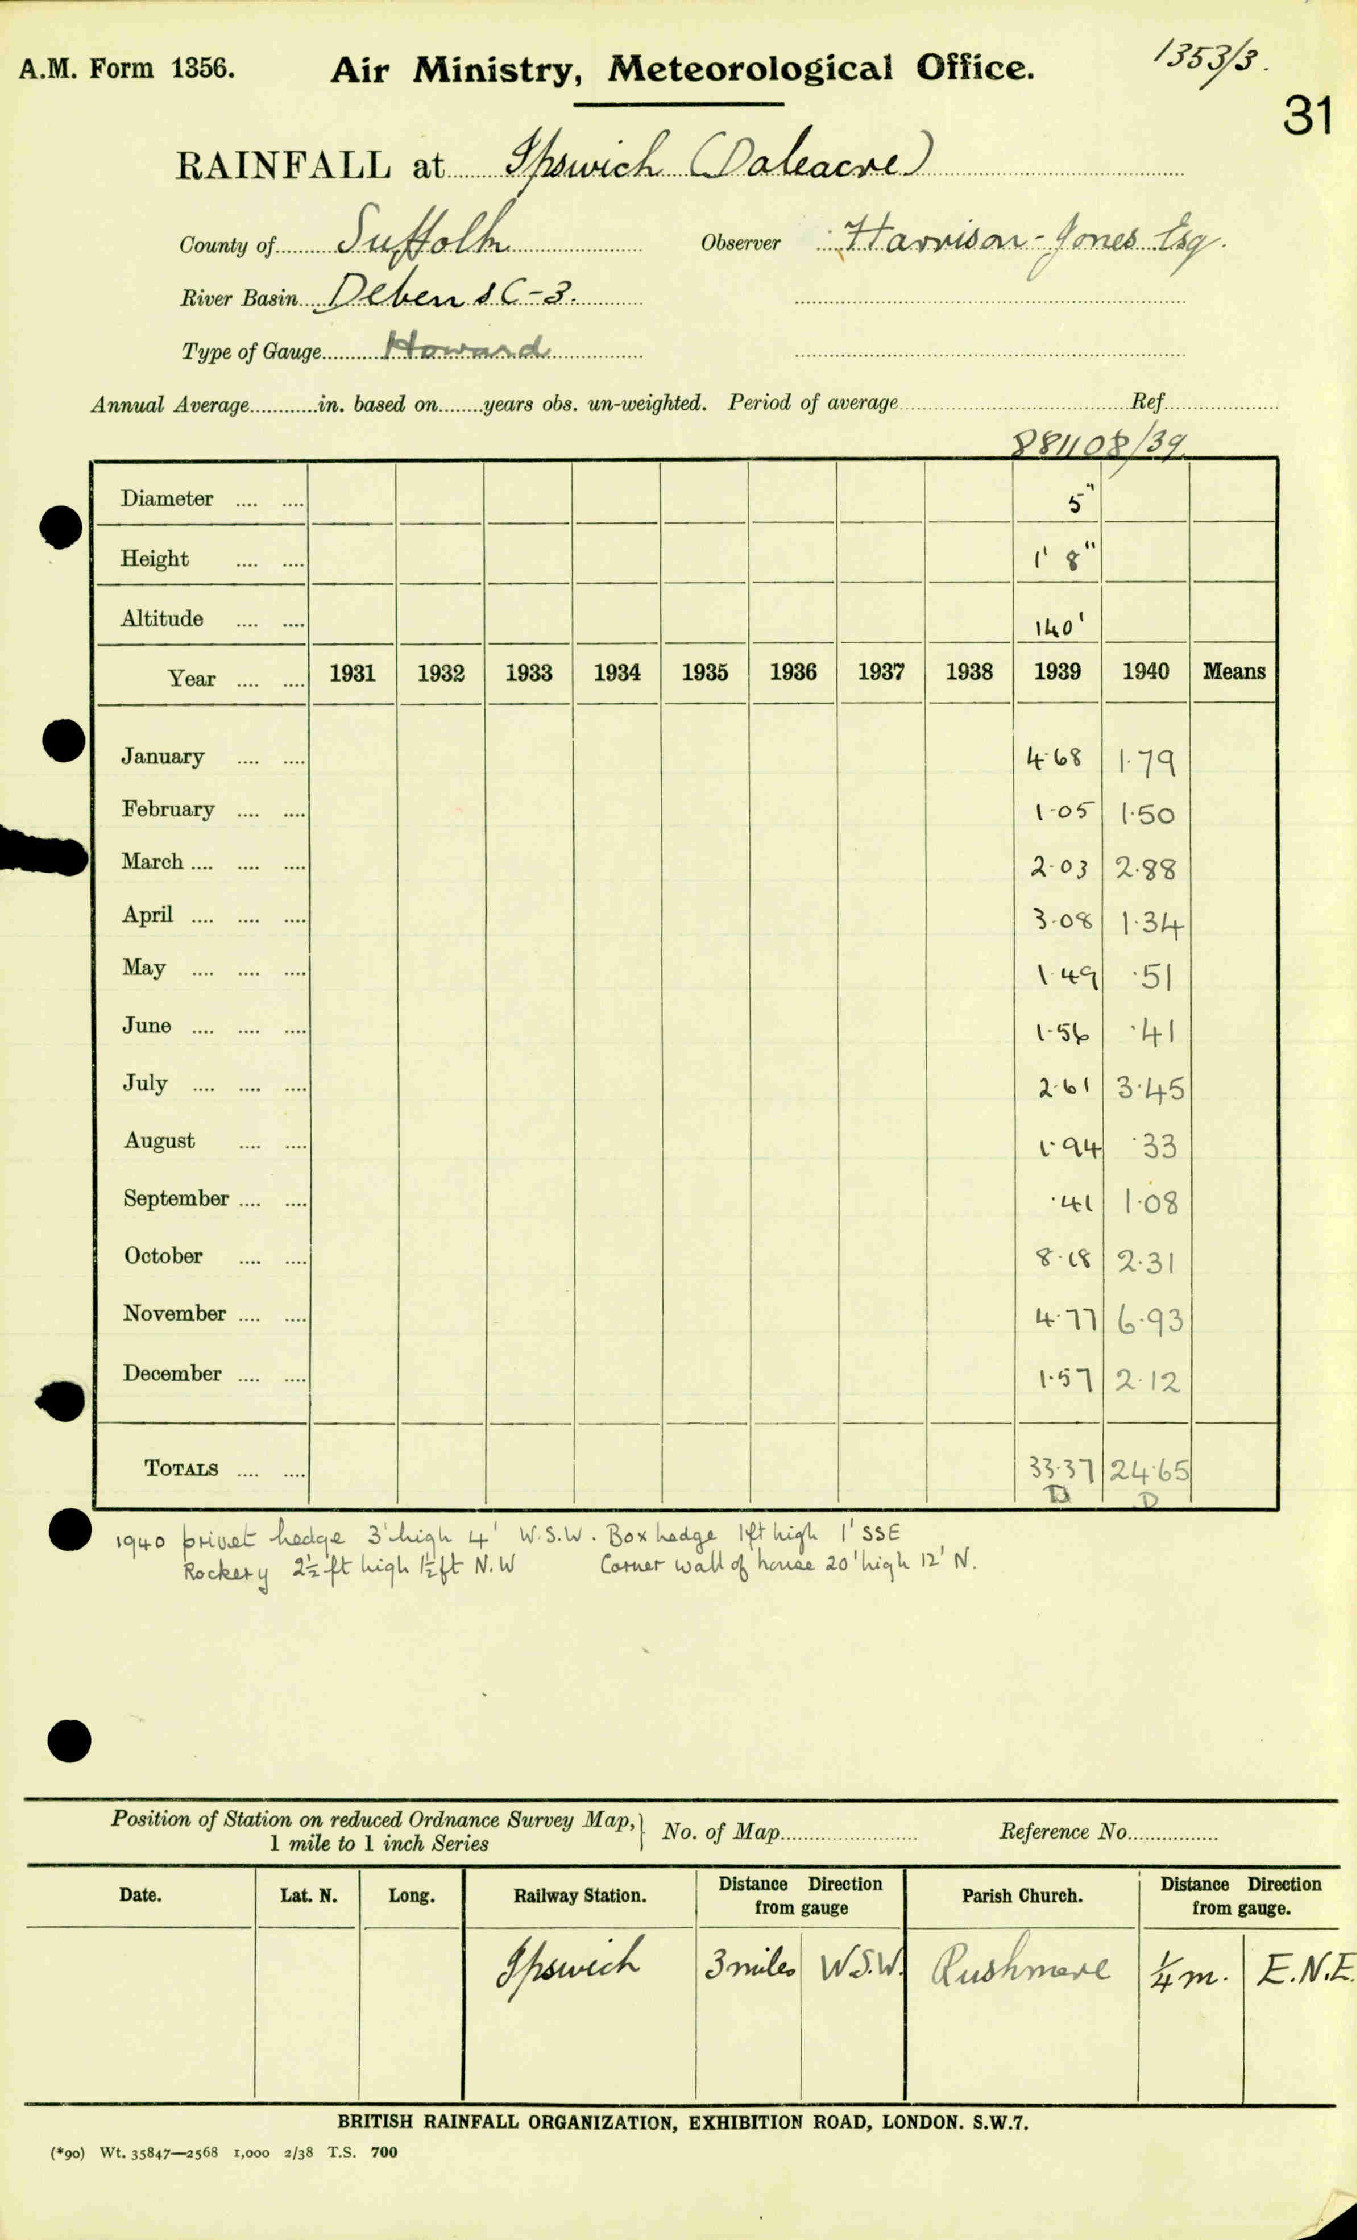 A.M. Form 1356. Air Ministry, Meteorological Office. 1353/3.
31
RAINFALL at Ipswich (Daleacre)
County of Suffolk Observer Harrison-Jones Esq.
River Basin Deben &C-3.
Type of Gauge Howard
Annual Average............in. based on........years obs. un-weighted. Period of average Ref.
881108/39
Diameter .... .... 5"
Height .... .... 1' 8"
Altitude .... .... 140'
Year .... .... 1931 1932 1933 1934 1935 1936 1937 1938 1939 1940 Means
January .... .... 4.68 1.79
February .... .... 1.05 1.50
March .... .... .... 2.03 2.88
April .... .... .... 3.08 1.34
May .... .... .... 1.49 .51
June .... .... .... 1.56 .41
July .... .... .... 2.61 3.45
August .... .... 1.94 .33
September .... .... .41 1.08
October .... .... 8.18 2.31
November .... .... 4.77 6.93
December .... .... 1.57 2.12
TOTALS .... .... 33.37 24.65
D D
1940 privet hedge 3' high 4' W.S.W. Box hedge 1ft high 1' SSE
Rockery 2½ ft high 1½ft N.W Corner wall of house 20' high 12' N.
Position of Station on reduced Ordnance Survey Map, } No. of Map Reference No.
1 mile to 1 inch Series
Date. Lat. N. Long. Railway Station. Distance Direction from gauge Parish Church. Distance Direction from gauge.
Ipswich 3 miles W.S.W. Rushmere ¼ m. E.N.E.
BRITISH RAINFALL ORGANIZATION, EXHIBITION ROAD, LONDON. S.W.7.
(*90) Wt. 35847—2568 1,000 2/38 T.S. 700